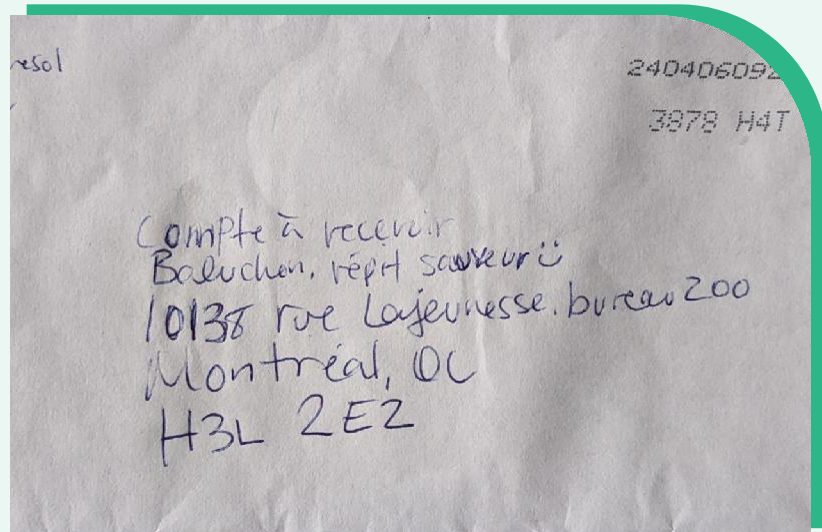 resol
240406092
3878 H4T
Compte à recevoir
Baluchon, répit sauveur ü
10138 rue Lajeunesse, bureau 200
Montréal, QC
H3L 2E2